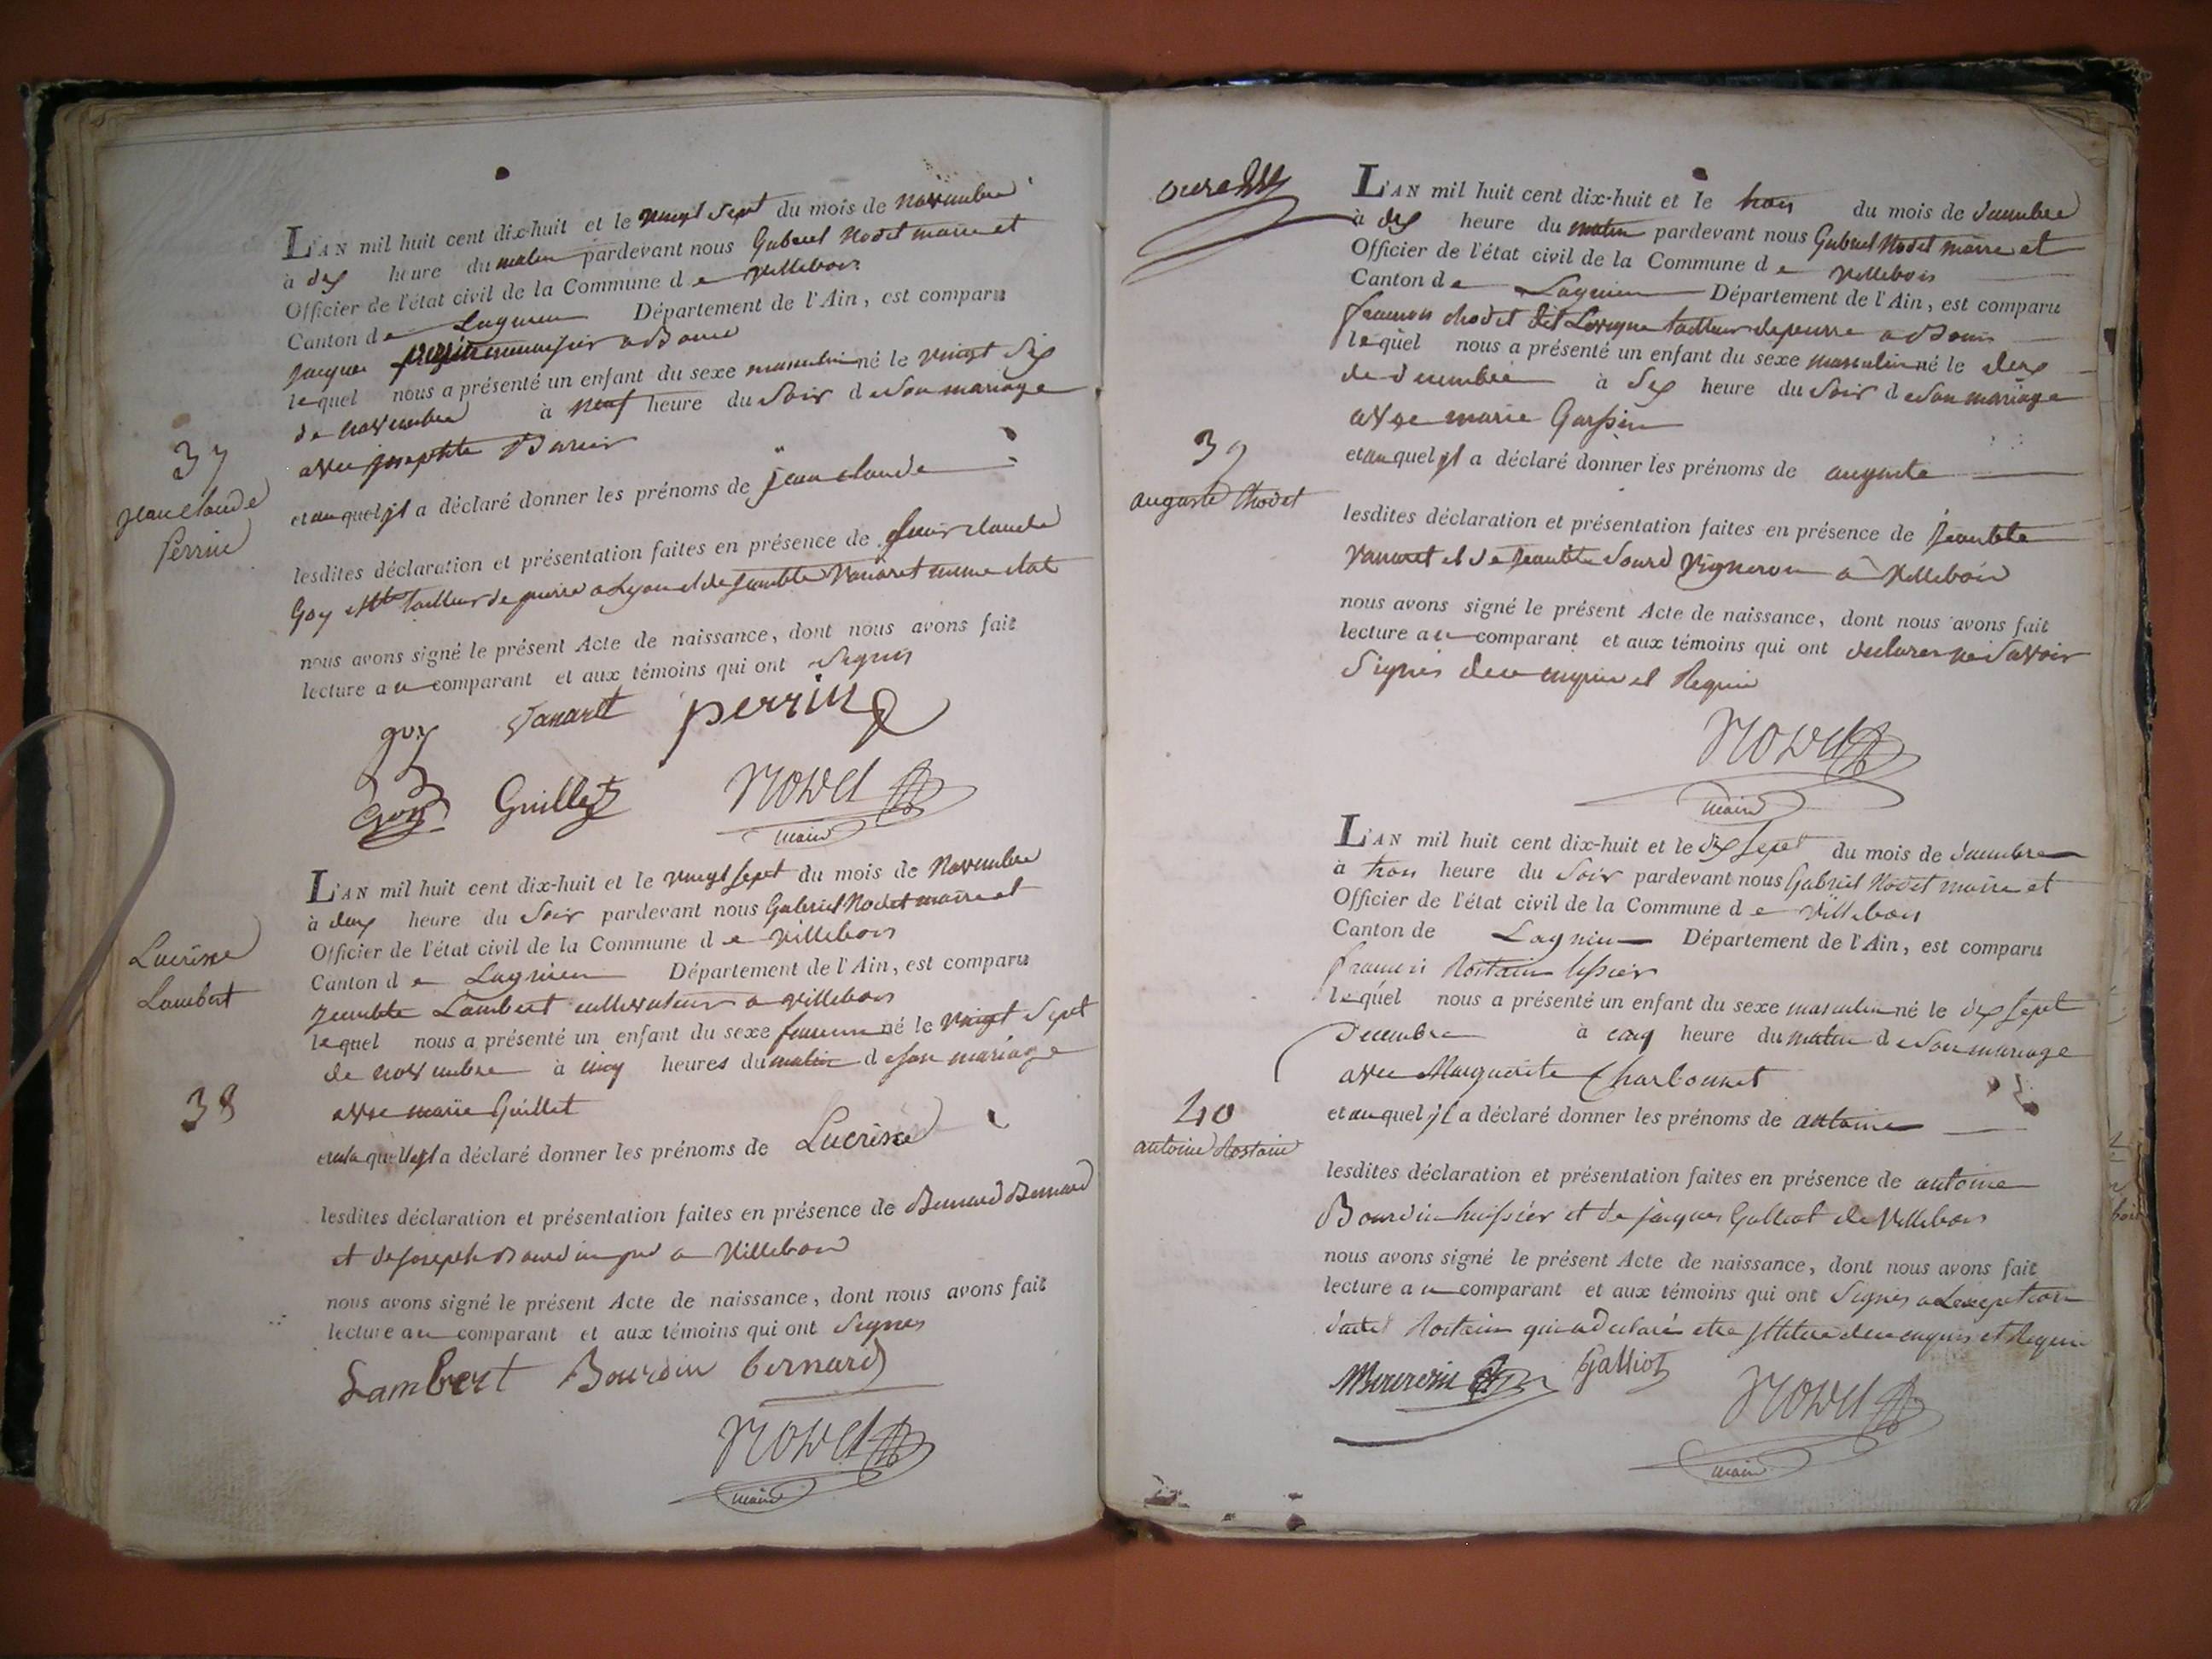 L'AN mil huit cent dix-huit et le vingt sept du mois de novembre
à dix heure du matin pardevant nous Gabriel Nodet maire et
Officier de l'état civil de la Commune de Villebois
Canton de Lagnieu Département de l'Ain, est comparu
jacques perrin a Bouis
lequel nous a présenté un enfant du sexe masculin né le vingt six
de novembre à neuf heure du Soir de Son mariage
avec josephte
et auquel jl a déclaré donner les prénoms de jean claude
37
jean claude
Perrin
lesdites déclaration et présentation faites en présence de claude
Goy tailleur de pierre a Lyon et de jeanbte Vanaret meme etat
nous avons signé le présent Acte de naissance, dont nous avons fait
lecture au comparant et aux témoins qui ont Signés
goy Vanaret perrin
Goy Guillet Nodet
maire
L'AN mil huit cent dix-huit et le vingt sept du mois de Novembre
à deux heure du Soir pardevant nous Gabriel Nodet maire et
Officier de l'état civil de la Commune de Villebois
Canton de Lagnieu Département de l'Ain, est comparu
jeanbte Lambert cultivateur a villebois
lequel nous a présenté un enfant du sexe feminin né le vingt Sept
de novembre à cinq heures du matin de son mariage
avec marie Guillet
Lucrèsse
Lambert
38
et a laquelle jl a déclaré donner les prénoms de Lucrèsse
lesdites déclaration et présentation faites en présence de Bernard Bernard
et de joseph Bourdin a Villebois
nous avons signé le présent Acte de naissance, dont nous avons fait
lecture au comparant et aux témoins qui ont Signés
Lambert Bourdin bernard
Nodet
maire
L'AN mil huit cent dix-huit et le trois du mois de decembre
à dix heure du matin pardevant nous Gabriel Nodet maire et
Officier de l'état civil de la Commune de Villebois
Canton de Lagnieu Département de l'Ain, est comparu
francois Nodet dit tailleur de pierre a Bouis
lequel nous a présenté un enfant du sexe masculin né le deux
de decembre à Six heure du Soir de Son mariage
avec marie
39
auguste Nodet
et auquel jl a déclaré donner les prénoms de auguste
lesdites déclaration et présentation faites en présence de jeanbte
Vanaret et de jeanbte Sourd Vigneron a Villebois
nous avons signé le présent Acte de naissance, dont nous avons fait
lecture au comparant et aux témoins qui ont declarer ne Savoir
Signés de ce enquis et Requis
Nodet
maire
L'AN mil huit cent dix-huit et le dix sept du mois de decembre
à trois heure du Soir pardevant nous Gabriel Nodet maire et
Officier de l'état civil de la Commune de Villebois
Canton de Lagnieu Département de l'Ain, est comparu
francois Rostain
lequel nous a présenté un enfant du sexe masculin né le dix sept
Decembre à cinq heure du matin de Son mariage
avec Marguerite Charbonnet
40
antoine Rostain
et auquel jl a déclaré donner les prénoms de antoine
lesdites déclaration et présentation faites en présence de antoine
Bourdin huissier et de jacques Galliot de Villebois
nous avons signé le présent Acte de naissance, dont nous avons fait
lecture au comparant et aux témoins qui ont Signés a Lexeption
dudit Rostain qui a declaré etre jlliteré de ce enquis et Requis
Galliot
Nodet
maire